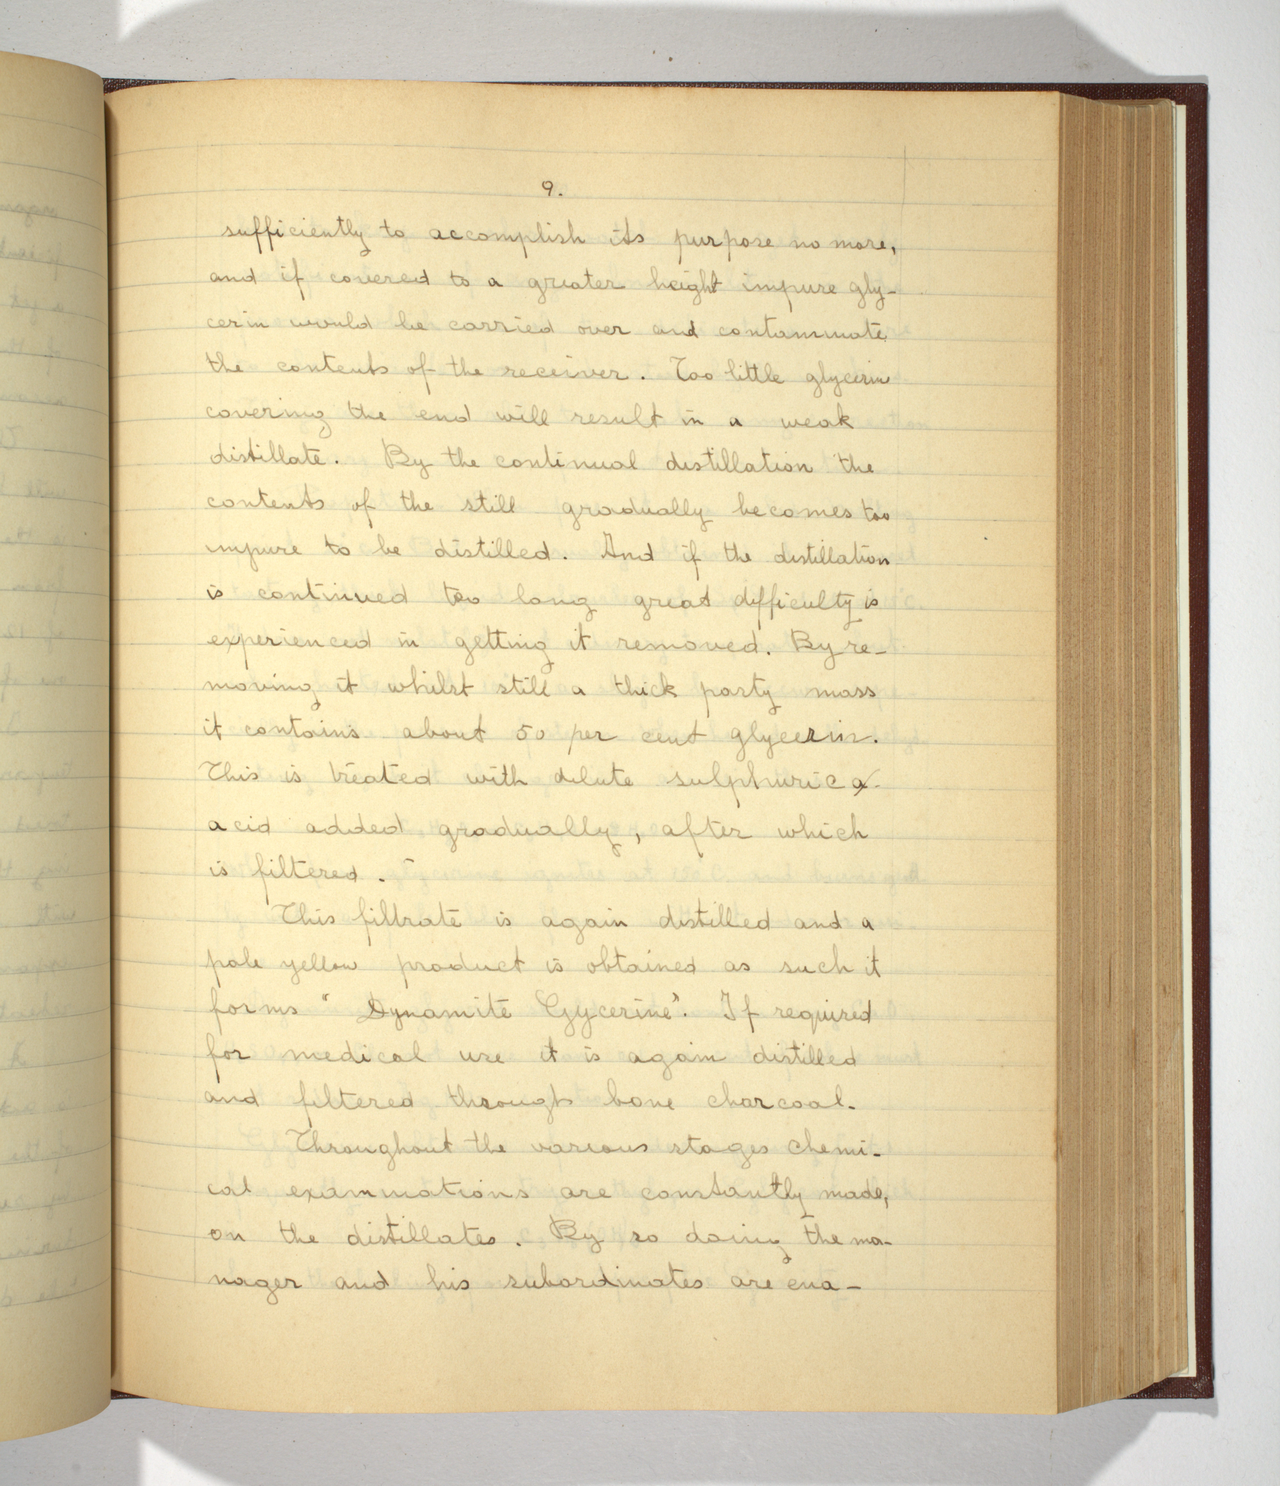 9.
sufficiently to accomplish its purpose no more,
and if covered to a greater height impure gly-
cerin would be carried over and contaminate
the contents of the receiver. Too little glycerin
covering the end will result in a weak
distillate. By the continual distillation the
contents of the still gradually becomes too
impure to be distilled. And if the distillation
is continued too long great difficulty is
experienced in getting it removed. By re-
moving it whilst still a thick party mass
it contains about 50 per cent glycerin.
This is treated with dilute sulphuric a
acid added gradually, after which
is filtered.
This filtrate is again distilled and a
pale yellow product is obtained as such it
forms "Dynamite Gycerine". If required
for medical use it is again distilled
and filtered through bone charcoal.
Throughout the various stages chemi-
cal examinations are constantly made,
on the distillates. By so doing the ma-
nager and his subordinates are ena-